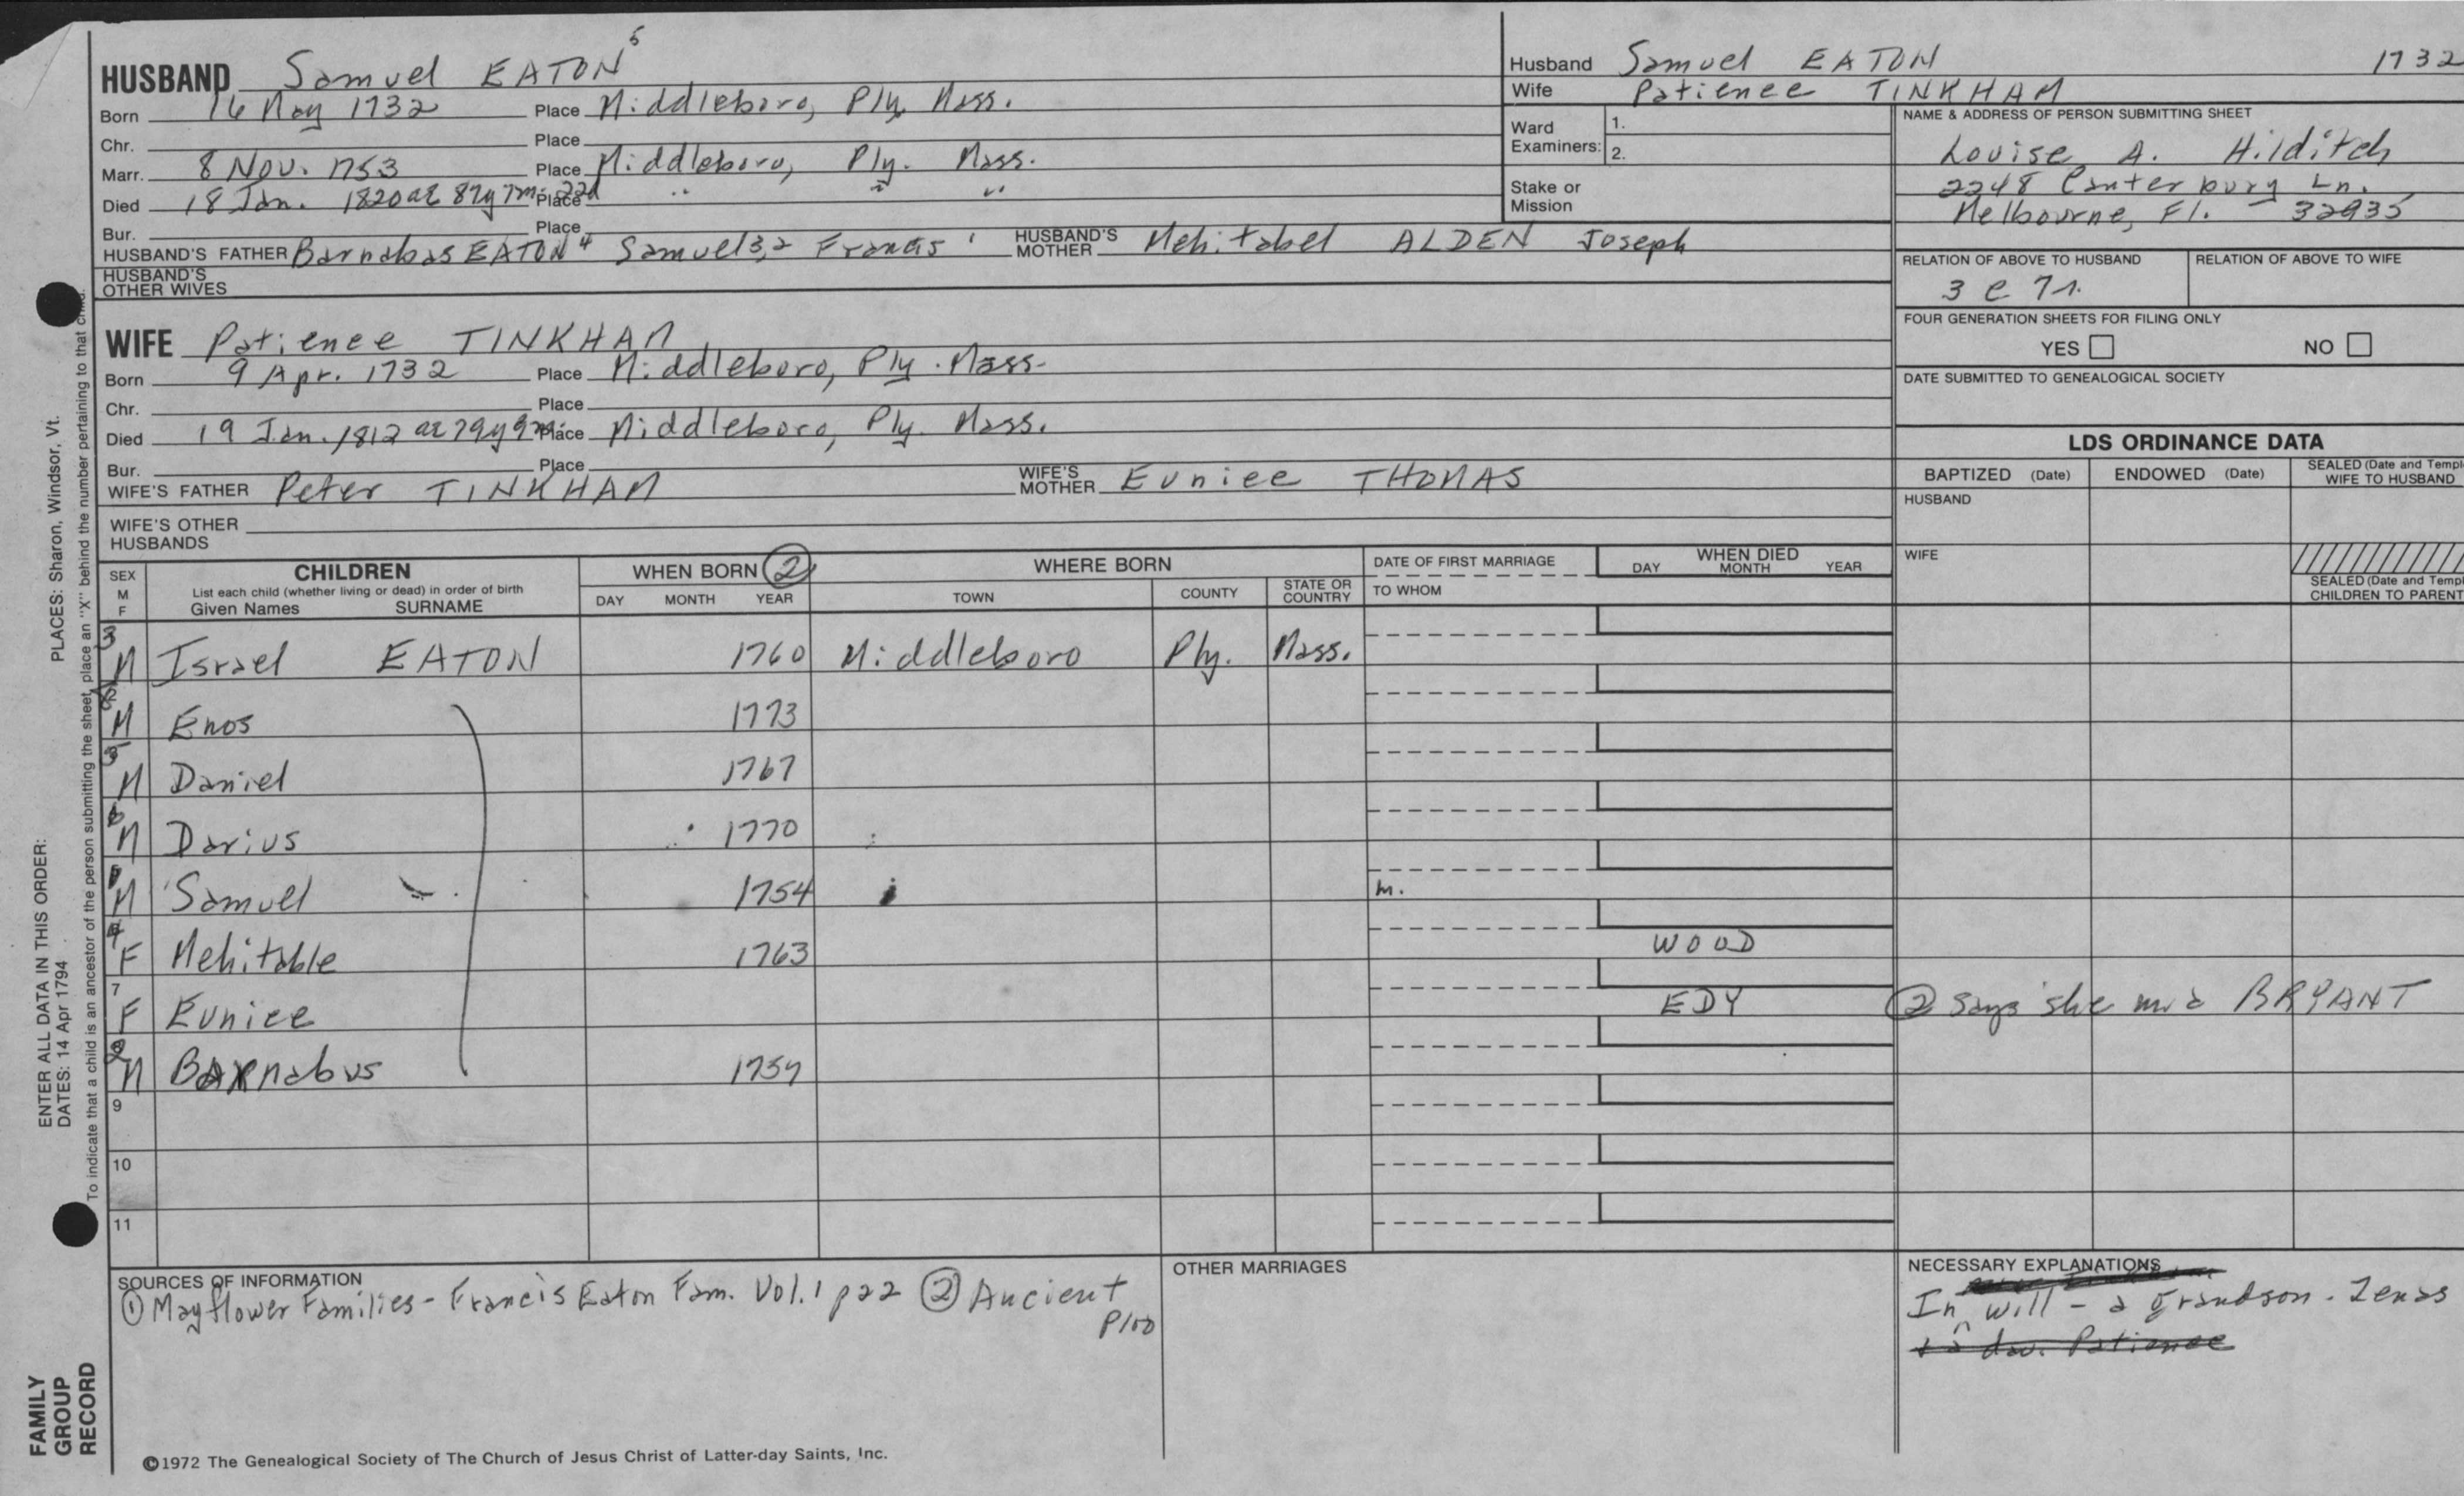 HUSBAND Samuel EATON 5
Born 16 May 1732 Place Middleboro, Ply. Mass.
Chr. Place
Marr. 8 Nov. 1753 Place Middleboro, Ply. Mass.
Died 18 Jan. 1820 ae 87y 7m 22d Place " " "
Bur. Place
HUSBAND'S FATHER Barnabas EATON 4 Samuel 3,2 Francis 1 HUSBAND'S MOTHER Mehitabel ALDEN Joseph
HUSBAND'S OTHER WIVES
WIFE Patience TINKHAM
Born 9 Apr. 1732 Place Middleboro, Ply. Mass.
Chr. Place
Died 19 Jan. 1812 ae 79y 9m Place Middleboro, Ply. Mass.
Bur. Place
WIFE'S FATHER Peter TINKHAM WIFE'S MOTHER Eunice THOMAS
WIFE'S OTHER HUSBANDS
Husband Samuel EATON 1732
Wife Patience TINKHAM
Ward Examiners: 1. 2.
Stake or Mission
NAME & ADDRESS OF PERSON SUBMITTING SHEET
Louise A. Hilditch
2248 Canterbury Ln.
Melbourne, Fl. 32935
RELATION OF ABOVE TO HUSBAND RELATION OF ABOVE TO WIFE
3 c 7r.
FOUR GENERATION SHEETS FOR FILING ONLY
YES NO
DATE SUBMITTED TO GENEALOGICAL SOCIETY
LDS ORDINANCE DATA
BAPTIZED (Date) ENDOWED (Date) SEALED (Date and Templ WIFE TO HUSBAND
HUSBAND
WIFE
SEALED (Date and Templ CHILDREN TO PARENT
SEX M F CHILDREN WHEN BORN ② WHERE BORN DATE OF FIRST MARRIAGE WHEN DIED
List each child (whether living or dead) in order of birth
Given Names SURNAME DAY MONTH YEAR TOWN COUNTY STATE OR COUNTRY TO WHOM DAY MONTH YEAR
3 M Israel EATON 1760 Middleboro Ply. Mass.
M Enos 1773
5 M Daniel 1767
6 M Darius 1770
M Samuel 1754 m.
4 F Mehitable 1763 WOOD
7 F Eunice EDY ② says she m a BRYANT
2 M Barnabus 1757
9
10
11
SOURCES OF INFORMATION
① Mayflower Families - Francis Eaton Fam. Vol. 1 p 22 ② Ancient
P100
OTHER MARRIAGES
NECESSARY EXPLANATIONS
In will - a grandson - Zenas
+ a dau. Patience
©1972 The Genealogical Society of The Church of Jesus Christ of Latter-day Saints, Inc.
ENTER ALL DATA IN THIS ORDER:
DATES: 14 Apr 1794
PLACES: Sharon, Windsor, Vt.
To indicate that a child is an ancestor of the person submitting the sheet, place an "X" behind the number pertaining to that child.
FAMILY
GROUP
RECORD